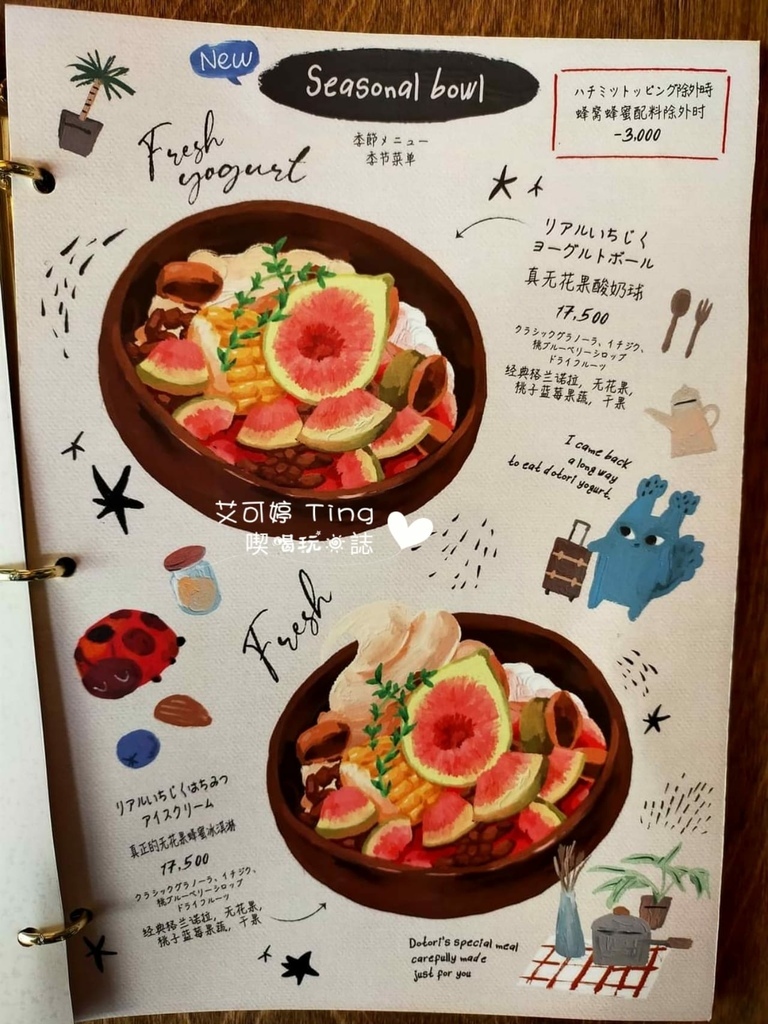 New
Seasonal bowl
ハチミツトッピング除外時
蜂窝蜂蜜配料除外时
-3,000
季節メニュー
季节菜单
Fresh
yogurt
リアルいちじく
ヨーグルトボール
真无花果酸奶球
17,500
クラシックグラノーラ、イチジク、
桃ブルーベリーシロップ
ドライフルーツ
经典格兰诺拉, 无花果,
桃子蓝莓果蔬, 干果
I came back
a long way
to eat dotori yogurt.
艾可婷 Ting
喫喝玩樂誌
Fresh
リアルいちじくはちみつ
アイスクリーム
真正的无花果蜂蜜冰淇淋
17,500
クラシックグラノーラ、イチジク、
桃ブルーベリーシロップ
ドライフルーツ
经典格兰诺拉, 无花果,
桃子蓝莓果蔬, 干果
Dotori's special meal
carefully made
just for you